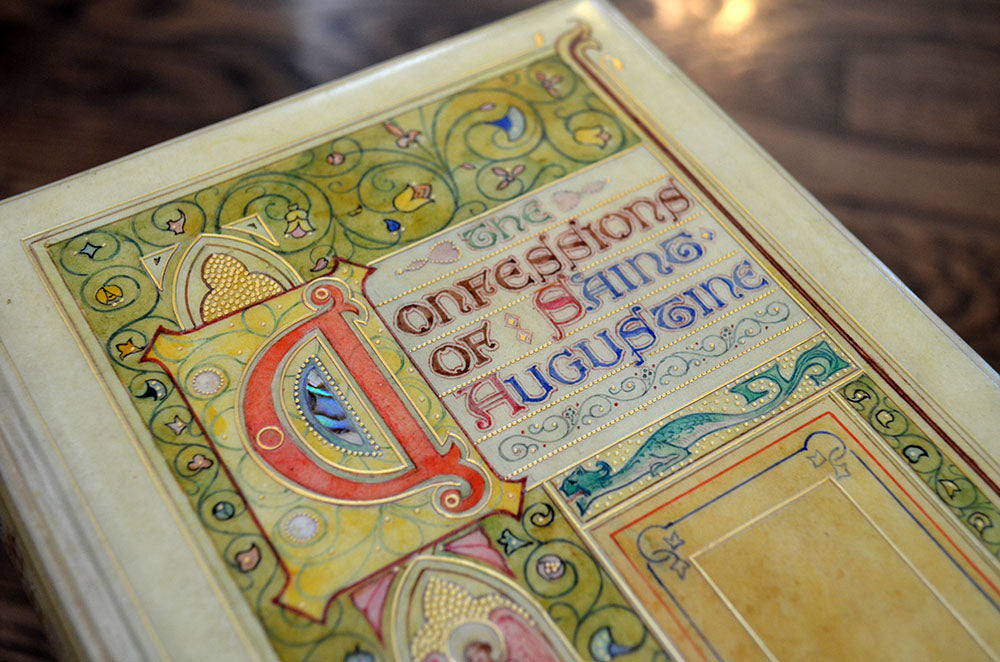 the
Confessions
of Saint
Augustine